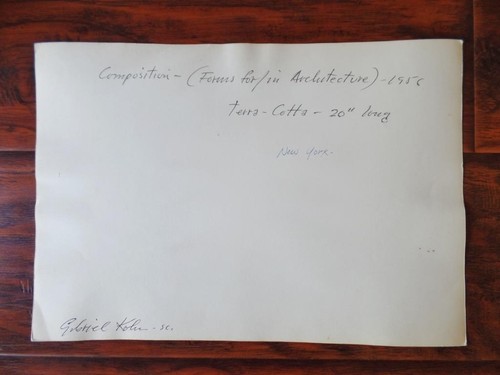 Composition - (Forms for/in Architecture) -
Terra-Cotta - 20" long
New York.
Gabriel Kohn - sc.